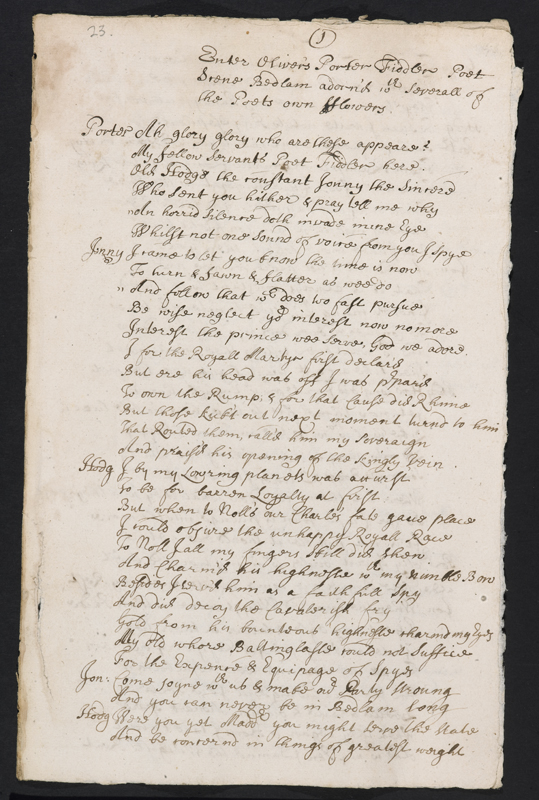 23.
1
Enter Olivers Porter Fiddler Poet
Scene Bedlam adorn'd wth severall of
the Poets own fflowers.
Porter Ah glory glory who are these appeare?
My fellow servants Poet Fiddler here.
Old Hodge the constant Jonny the sincere
Who sent you hither & pray tell me why
An horrid silence doth invade mine Eye
Whilst not one sound of voice from you I spye
Jonny I came to let you know the time is now
To turn & fawn & flatter as wee do
And follow that wch does too fast pursue
Be wise neglect yor interest now no more
Interest the prince wee serve, God we adore.
I for the Royall Martyr first declar'd
But ere his head was off I was p'par'd
To own the Rump, & for that cause did Rhime
But those kickt out next moment turnd to him
That Routed them, call'd him my Soveraign
And prais'd his opening of the kingly vein.
Hodg I by my Lowring planets was accurst
To be for barren Loyalty at first
But when to Noll's our Charles fate gave place
I could abjure the unhappy Royall Race
To Noll I all my fingers skill did shew
And Charm'd his highnesse wth my nimble Bow
Besides I serv'd him as a faithfull spy
And did decoy the Cavalerish fry
Gold from his bounteous highnesse charmd my Eyes
My old whore Baltinglasse could not suffice
For the Expence & Equipage of Spyes
Jon: Come joyne wth us & make our party strong
And you can never be in Bedlam long
Hodg Were you yet Madd you might serve the State
And be concernd in things of greatest weight